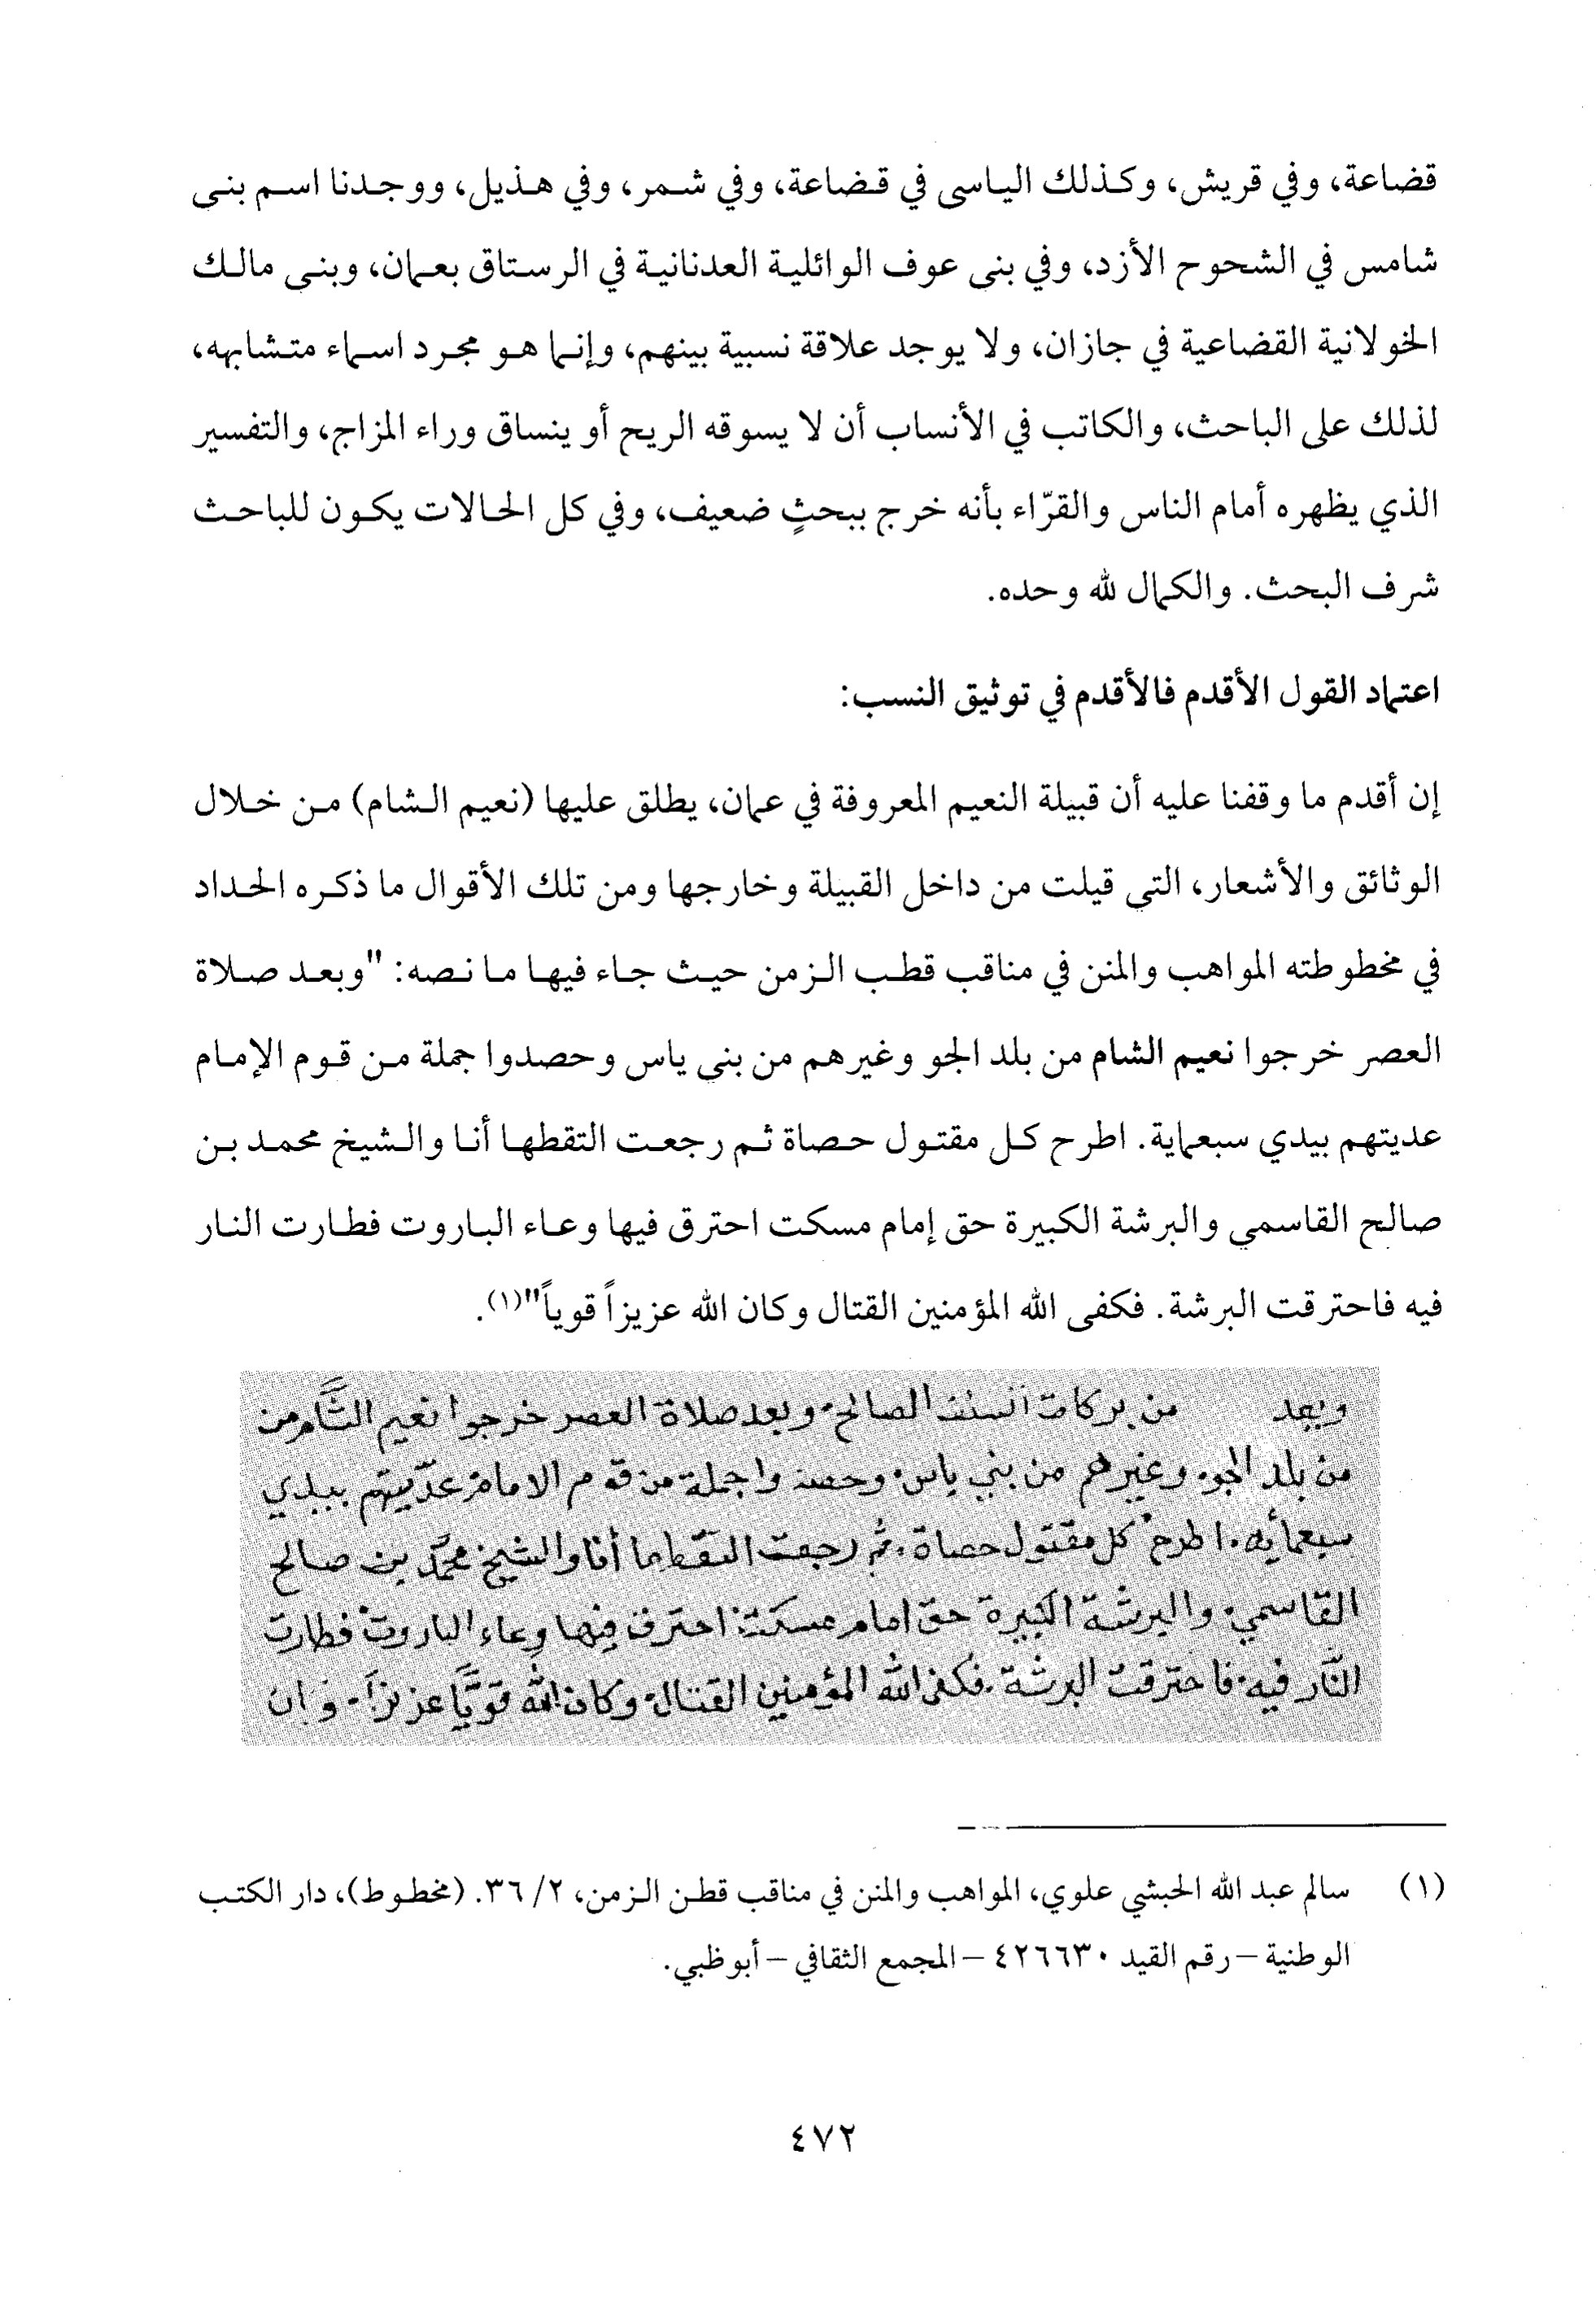 قضاعة، وفي قريش، وكذلك الياسى في قضاعة، وفي شمر، وفي هذيل، ووجدنا اسم بنى
شامس في الشحوح الأزد، وفي بنى عوف الوائلية العدنانية في الرستاق بعمان، وبنى مالك
الخولانية القضاعية في جازان، ولا يوجد علاقة نسبية بينهم، وإنما هو مجرد اسماء متشابهه،
لذلك على الباحث، والكاتب في الأنساب أن لا يسوقه الريح أو ينساق وراء المزاج، والتفسير
الذي يظهره أمام الناس والقرّاء بأنه خرج ببحثٍ ضعيف، وفي كل الحالات يكون للباحث
شرف البحث. والكمال لله وحده.
اعتماد القول الأقدم فالأقدم في توثيق النسب:
إن أقدم ما وقفنا عليه أن قبيلة النعيم المعروفة في عمان، يطلق عليها (نعيم الشام) من خلال
الوثائق والأشعار، التي قيلت من داخل القبيلة وخارجها ومن تلك الأقوال ما ذكره الحداد
في مخطوطته المواهب والمنن في مناقب قطب الزمن حيث جاء فيها ما نصه: "وبعد صلاة
العصر خرجوا نعيم الشام من بلد الجو وغيرهم من بنى ياس وحصدوا جملة من قوم الإمام
عديتهم بيدي سبعماية. اطرح كل مقتول حصاة ثم رجعت التقطها أنا والشيخ محمد بن
صالح القاسمي والبرشة الكبيرة حق إمام مسكت احترق فيها وعاء الباروت فطارت النار
فيه فاحترقت البرشة. فكفى الله المؤمنين القتال وكان الله عزيزاً قوياً"(١).
وبعد من بركات السلف الصالح. وبعد صلاة العصر خرجوا نعيم الشَّام من
من بلد الجو. وغيرهم من بني ياس. وحصدوا جملة من قوم الامام عدّيتهم بيدي
سبعمأيه. اطرح كل مقتول حصاة. ثُم رجعت التقطها أنا والشيخ محمَّد بن صالح
القاسمي. والبرشة الكبيرة حق امام مسكت احترق فيها وعاء الباروت فطارت
النَّار فيه. فاحترقت البرشة. فكفى الله المؤمنين القتال. وكان الله قويًّا عزيزاً. وان
(١) سالم عبد الله الحبشي علوي، المواهب والمنن في مناقب قطن الزمن، ٢/ ٣٦. (مخطوط)، دار الكتب
الوطنية – رقم القيد ٤٢٦٦٣٠ – المجمع الثقافي – أبوظبي.
٤٧٢